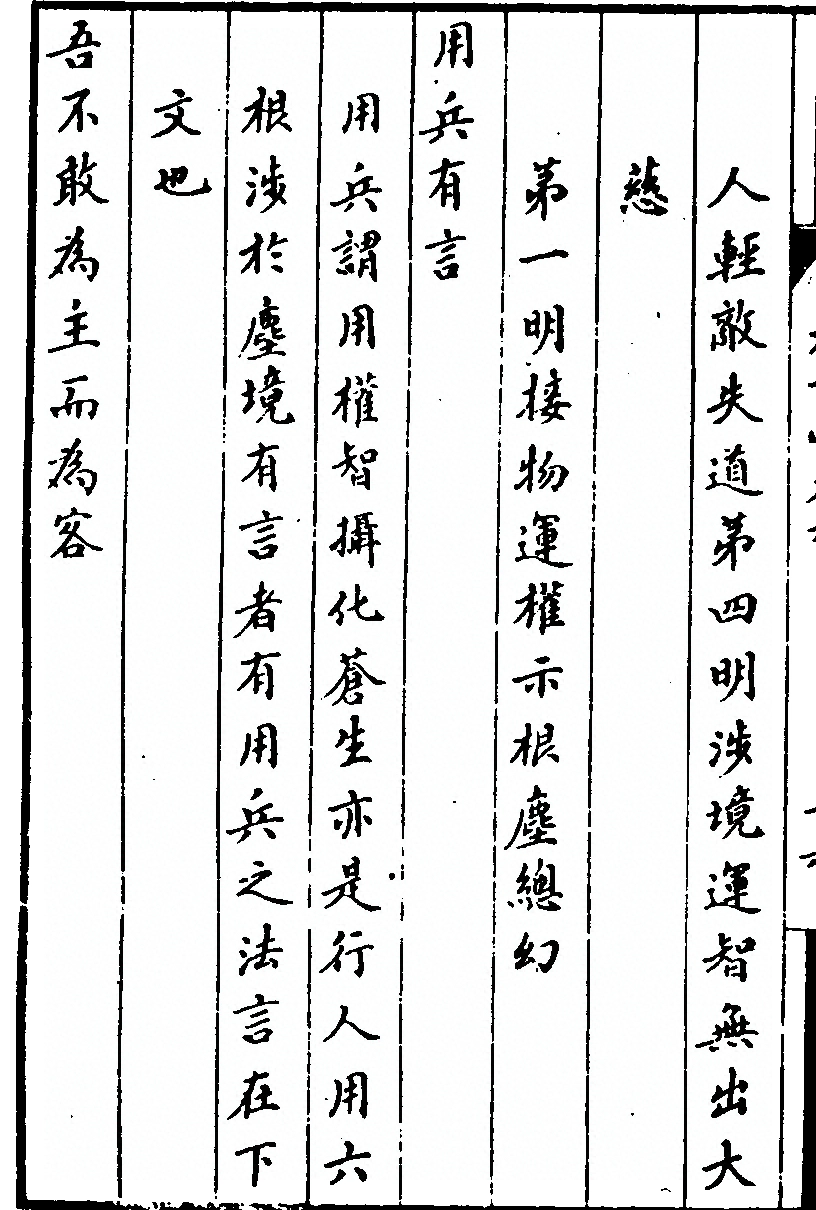 人輕敵失道第四明涉境運智無出大
慈
第一明接物運權示根塵總幻
用兵有言
用兵謂用權智攝化蒼生亦是行人用六
根涉於塵境有言者有用兵之法言在下
文也
吾不敢為主而為客